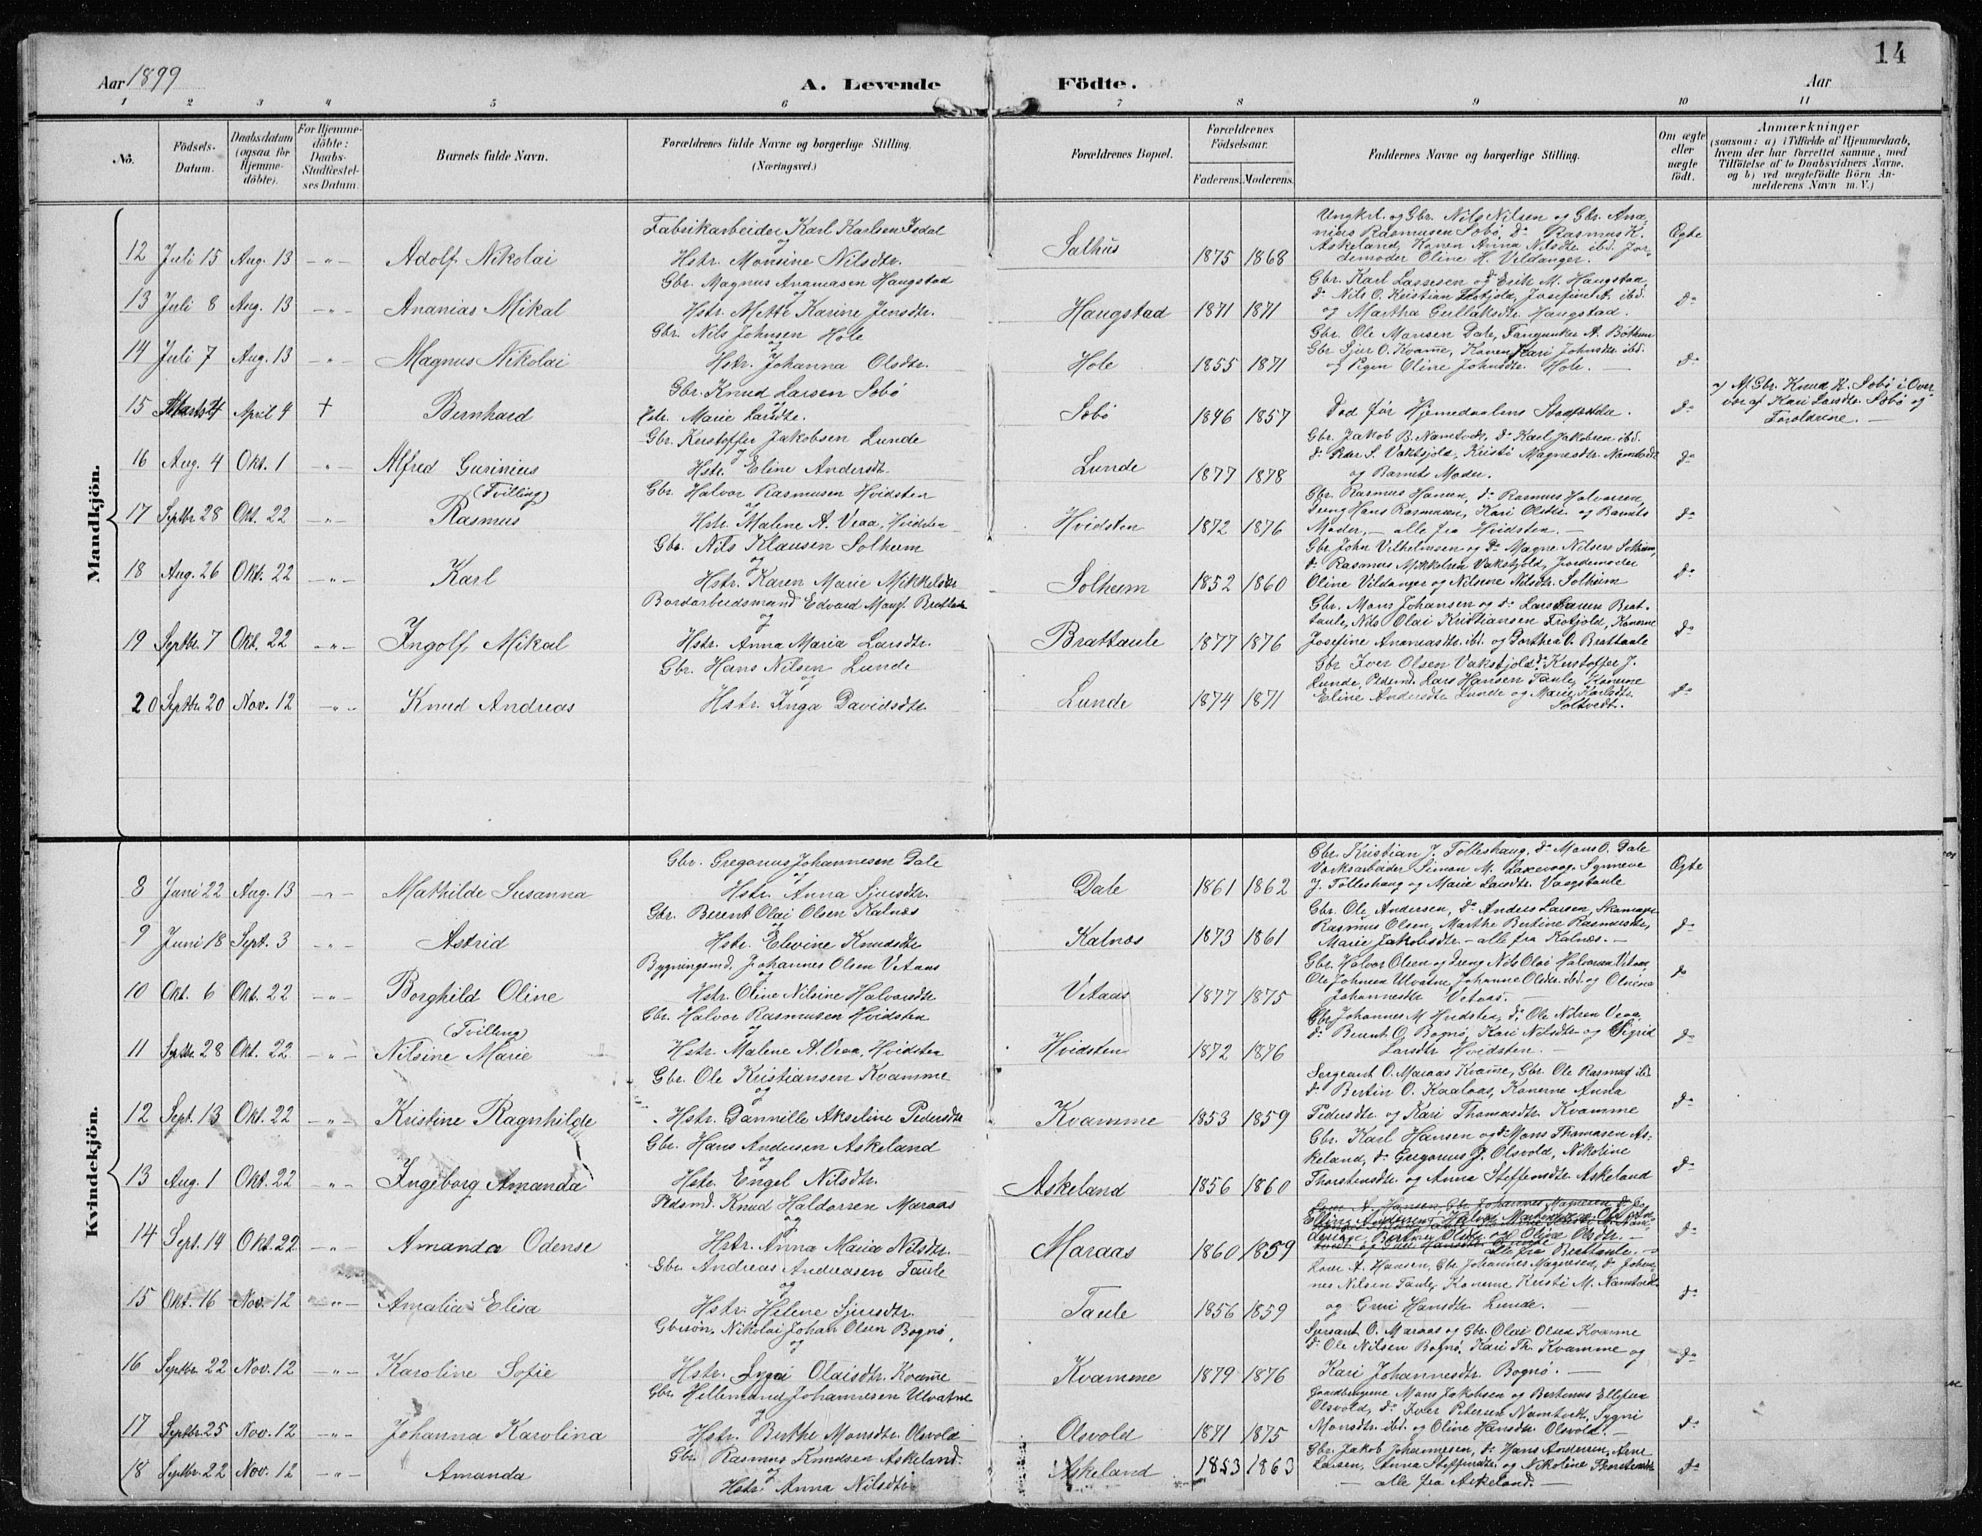 14
Aar 1899
A. Levende
Födte.
Aar
1 2 3 4 5 6 7 8 9 10 11
No.
Födsels-Datum.
Daabsdatum (ogsaa for Hjemme-döbte).
For Hjemme-döbte: Daabs-Stadfæstel-ses Datum.
Barnets fulde Navn.
Forældrenes fulde Navne og borgerlige Stilling.
(Næringsvei.)
Forældrenes Bopæl.
Forældrenes Födselsaar.
Faderens. Moderens.
Faddernes Navne og borgerlige Stilling.
Om ægte eller uægte födt.
Anmærkninger
(saasom: a) i Tilfælde af Hjemmedaab, hvem der har forrettet samme, med Tilföielse af to Daabsvidners Navne, og b) ved uægtefödte Börn An-melderens Navn m. V.)
Mandkjön.
Fabrikarbeider Karl Karlsen Isdal
og
12 Juli 15 Aug. 13 -"- Adolf Nikolai Hstr. Monsine Nilsdtr. Salhus 1875 1868 Ægte
Ungkrl. og Gbr. Nils Nilsen og Gbr. Ana-
nias Rasmusen Sobö, do Rasmus K.
Askeland, Konen Anna Nilsdtr ibd. Jor-
demoder Oline H. Vildanger.
Gbr. Magnus Ananiasen Haugstad
og
13 Juli 8 Aug. 13 -"- Ananias Mikal Hstr. Mette Karine Jensdtr. Haugstad 1871 1871 do
Gbr. Karl Lassesen do Erik M. Haugstad,
do Nils O. Kristian Josefine A. ibd.
og Martha Gullaksdtr Haugstad.
Gbr. Nils Johnsen Hole
og
14 Juli 7 Aug. 13 -"- Magnus Nikolai Hstr. Johanna Olsdtr. Hole 1855 1871 do
Gbr. Ole Mansen Dale,
Gbr Sjur O. Kvamme, Konen Kari Johnsdtr ibd.
og Pigen Oline Johnsdtr Hole. —
Gbr. Knud Larsen Sobö
15 Marts 4 April 4 † Bernhard Marie Larsdtr. Sobö 1846 1857 do
Död før Hjemedaabens
a) Af Gbr. Knud K. Sobö i Over-
vær af Kari Larsdtr. Sobö og
Forældrene. —
Gbr. Kristoffer Jakobsen Lunde
og
16 Aug. 4 Okt. 1 -"- Alfred Gurinius Hstr. Eline Andersdtr. Lunde 1877 1878 do
Gbr. Jakob B. Namtvedt, do Karl Jakobsen ibd.
do Peder S. Vakskjold, Kristi Magnesdtr. Namtvedt
og Barnets Moder. —
Gbr. Halvor Rasmusen Hvidsten
og
(Tvilling)
17 Septbr 28 Okt. 22 -"- Rasmus Hstr. Malene A. Veaa, Hvidsten Hvidsten 1872 1876 do
Gbr. Rasmus Hansen, do Rasmus Halvorsen,
Dreng Hans Rasmusen, Kari Olsdtr og Barnets
Moder, — alle fra Hvidsten. —
Gbr. Nils Klausen Solheim
og
18 Aug. 26 Okt. 22 -"- Karl Hstr. Karen Marie Mikkelsdtr Solheim 1852 1860 do
Gbr. John Vilhelmsen og do Magne Nilsen Solheim,
do Rasmus Mikkelsen Vakskjold, Jordemoder
Oline Vildanger og Nilsine Nilsdtr. Solheim
Bordarbeidsmand Edvard Brattaule
og
19 Septbr. 7 Okt. 22 -"- Ingolf Mikal Hstr. Anna Maria Larsdtr. Brattaule 1877 1876 do
Gbr. Mons Johansen og do Lars Larsen Brat-
taule, Nils Olai Kristiansen Konerne
Josefine Ananiasdtr. ibd. og Dorthea O. Brattaule
Gbr. Hans Nilsen Lunde
og
20 Septbr. 20 Nov. 12 -"- Knud Andreas Hstr. Inga Davidsdtr Lunde 1874 1871 do
Gbr Iver Olsen Vakskjold do Kristoffer J.
Lunde, Pldsmd. Lars Hansen Taule, Konerne
Eline Andersdtr Lunde og Marie Karlsdtr.
Soltvedt.
Kvindekjön.
Gbr. Gregorius Johannesen Dale
og
8 Juni 22 Aug. 13 -"- Mathilde Susanna Hstr. Anna Sjursdtr. Dale 1861 1862 Ægte
Gbr. Kristian J. Tolleshaug, do Mons O. Dale
Værksarbeider Simon M. Laxevaag, Synneve
J. Tolleshaug og Marie Larsdtr. Vaagstaule
Gbr. Berent Olai Olsen Kalnæs
9 Juni 18 Sept. 3 -"- Astrid Hstr. Elevine Knudsdtr Kalnæs 1873 1861 do
Gbr. Ole Andersen, do Anders Larsen, Skomager
Rasmus Olsen, Marthe Bertine Rasmusdtr,
Marie Jakobsdtr. — alle fra Kalnæs. —
Bygningsmd. Johannes Olsen Vetaas
og
10 Okt. 6 Okt. 22 -"- Borghild Oline Hstr. Oline Nilsine Halvorsdtr Vetaas 1877 1875 do
Gbr. Halvor Olsen og Dreng Nils Olai Halvorsen Vetaas,
Ole Johnsen Ulvatne, Johanne Olsdtr. ibd. og Olevina
Johannesdtr Vetaas. —
Gbr. Halvor Rasmusen Hvidsten
og
(Tvilling)
11 Septbr. 28 Okt. 22 -"- Nilsine Marie Hstr. Malene A. Veaa, Hvidsten Hvidsten 1872 1876 do
Gbr Johannes M Hvidsten, do Ole Nilsen Veaa,
do Bernt O. Bognö, Kari Nilsdtr og Sigrid
Larsdtr Hvidsten. —
Gbr. Ole Kristiansen Kvamme
og
12 Sept. 13 Okt. 22 -"- Kristine Ragnhilde Hstr. Dannille Akseline Pedersdtr Kvamme 1853 1859 do
Sergeant O. Maraas Kvamme, Gbr. Ole Rasmus ibd.
do Bertin O. Kaalaas, Konerne Anna
Pedersdtr og Kari Thomasdtr. Kvamme
Gbr. Hans Andersen Askeland
og
13 Aug. 1 Okt. 22 -"- Ingeborg Amanda Hstr. Engel Nilsdtr. Askeland 1856 1860 do
Gbr. Karl Hansen og do Mons Thomasen As-
keland, do Gregorius J. Olsvold, Nikoline
Thorstensdtr og Anna Steffensdtr Askeland
Pldsmd. Knud Haldorsen Maraas
og
14 Sept. 14 Okt. 22 -"- Amanda Odense Hstr. Anna Maria Nilsdtr. Maraas 1860 1859 do
og Oline Olsdtr. —
alle fra Brattaule. —
Gbr. Andreas Andreasen Taule
og
15 Okt. 16 Nov. 12 -"- Amalia Elisa Hstr. Helene Sjursdtr. Taule 1856 1859 do
A. Hansen, Gbr Johannes Magnesen, do Johan-
nes Nilsen Taule, Konerne Kristi M. Namtvedt
og Guri Hansdtr. Lunde. —
Gbrsön. Nikolai Johan Olsen Bognö,
og
16 Septbr. 22 Nov. 12 -"- Karoline Sofie Hstr. Olaisdtr. Kvamme Kvamme 1879 1876 do
O. Maraas og Gbr. Olai Olsen Kvamme
do Ole Nilsen Bognö, Kari Th. Kvamme og
Kari Johannesdtr. Bognö. —
Gbr. Hillemand Johannesen Ulvatne
og
17 Septbr. 25 Nov. 12 -"- Johanna Karolina Hstr. Berthe Monsdtr. Olsvold Olsvold 1871 1875 do
Gaardbrugerne Mons Jakobsen og Bertinus Ellefsen
Olsvold, do Iver Petersen Namtvedt, Sygni
Monsdtr. ibd. og Oline Hansdtr. Olsvold. —
Gbr. Rasmus Knudsen Askeland.
og
18 Septbr. 22 Nov. 12 -"- Amanda Hstr. Anna Nilsdtr. Askeland 1853 1863 do
Gbr. Jakob Johannesen, do Hans Andersen, Arne
Larsen, Anna Steffensdtr og Nikoline Thorstensdtr
— alle fra Askeland. —